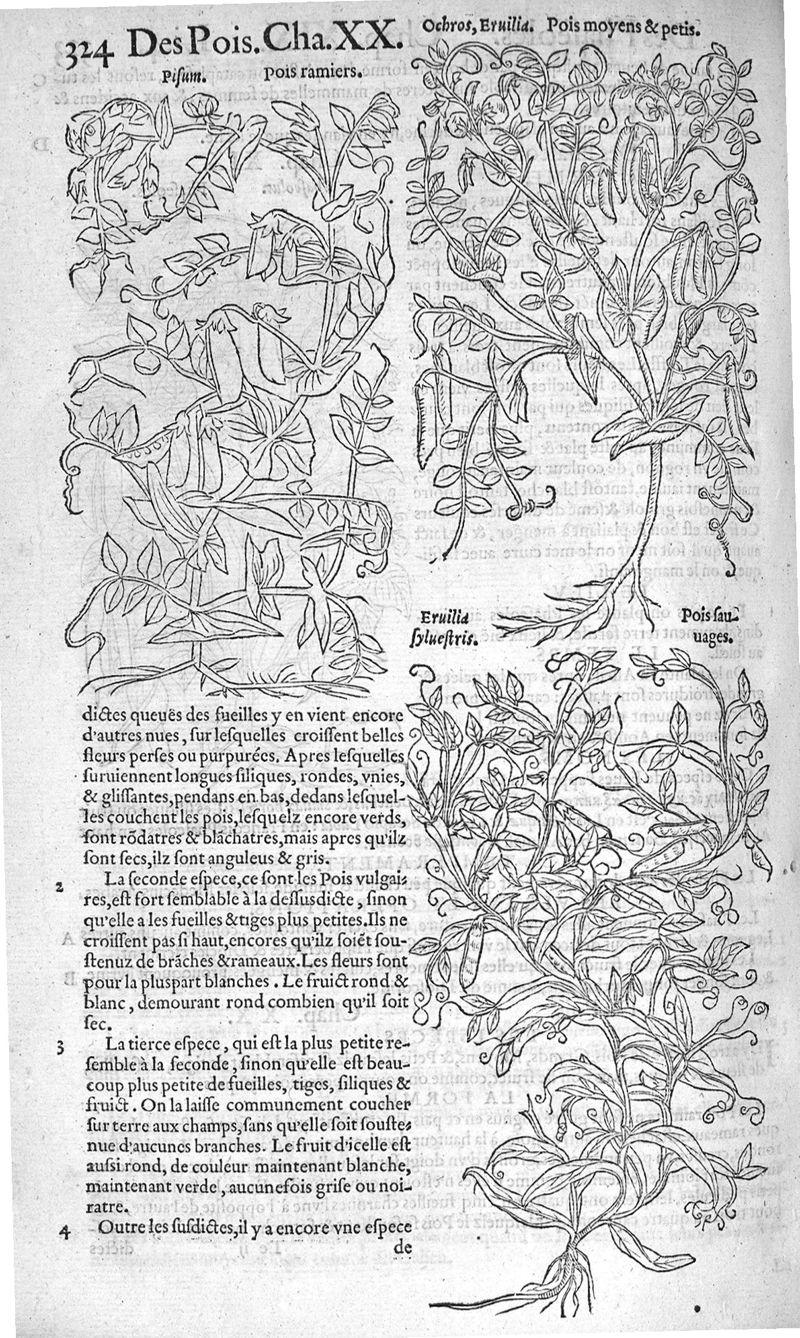 324 Des Pois. Cha. XX.
Pisum. Pois ramiers.
Ochros, Eruilia. Pois moyens & petis.
Eruilia
syluestris.
Pois sau-
uages.
dictes queuës des fueilles y en vient encore
d'autres nues, sur lesquelles croissent belles
fleurs perses ou purpurées. Apres lesquelles
suruiennent longues siliques, rondes, vnies,
& glissantes, pendans en bas, dedans lesquel-
les couchent les pois, lesquelz encore verds,
sont rõdatres & blãchatres, mais apres qu'ilz
sont secs, ilz sont anguleus & gris.
2 La seconde espece, ce sont les Pois vulgai-
res, est fort semblable à la dessusdicte, sinon
qu'elle a les fueilles & tiges plus petites. Ils ne
croissent pas si haut, encores qu'ilz soiẽt sou-
stenuz de brãches & rameaux. Les fleurs sont
pour la pluspart blanches. Le fruict rond &
blanc, demourant rond combien qu'il soit
sec.
3 La tierce espece, qui est la plus petite re-
semble à la seconde, sinon qu'elle est beau-
coup plus petite de fueilles, tiges, siliques &
fruict. On la laisse communement coucher
sur terre aux champs, sans qu'elle soit souste-
nue d'aucunes branches. Le fruit d'icelle est
aussi rond, de couleur maintenant blanche,
maintenant verde, aucunesfois grise ou noi-
ratre.
4 Outre les susdictes, il y a encore vne espece
de